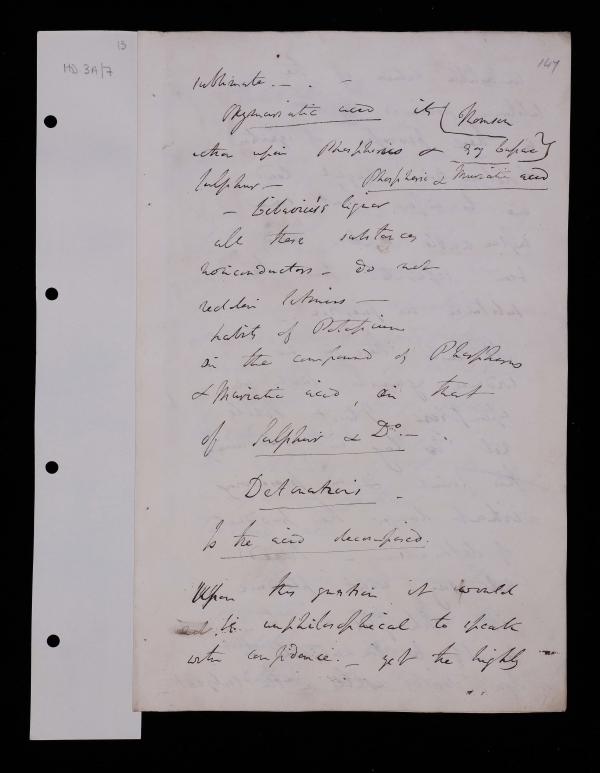 13
HD 3A/7
147
sublimate. — . —
Oxymuriatic acid its { Thomson
action upon Phosphorus & Gay Lussac }
Sulphur — Phosphoric & Muriatic acid
— Libavius's liquor
all these substances
nonconductors — do not
redden litmus —
habits of Potassium
in the compound of Phosphorus
& Muriatic acid, in that
of Sulphur & Do. —
Detonations —
Is the acid decomposed.
Upon this question it would
be unphilosophical to speak
with confidence. — yet the highly